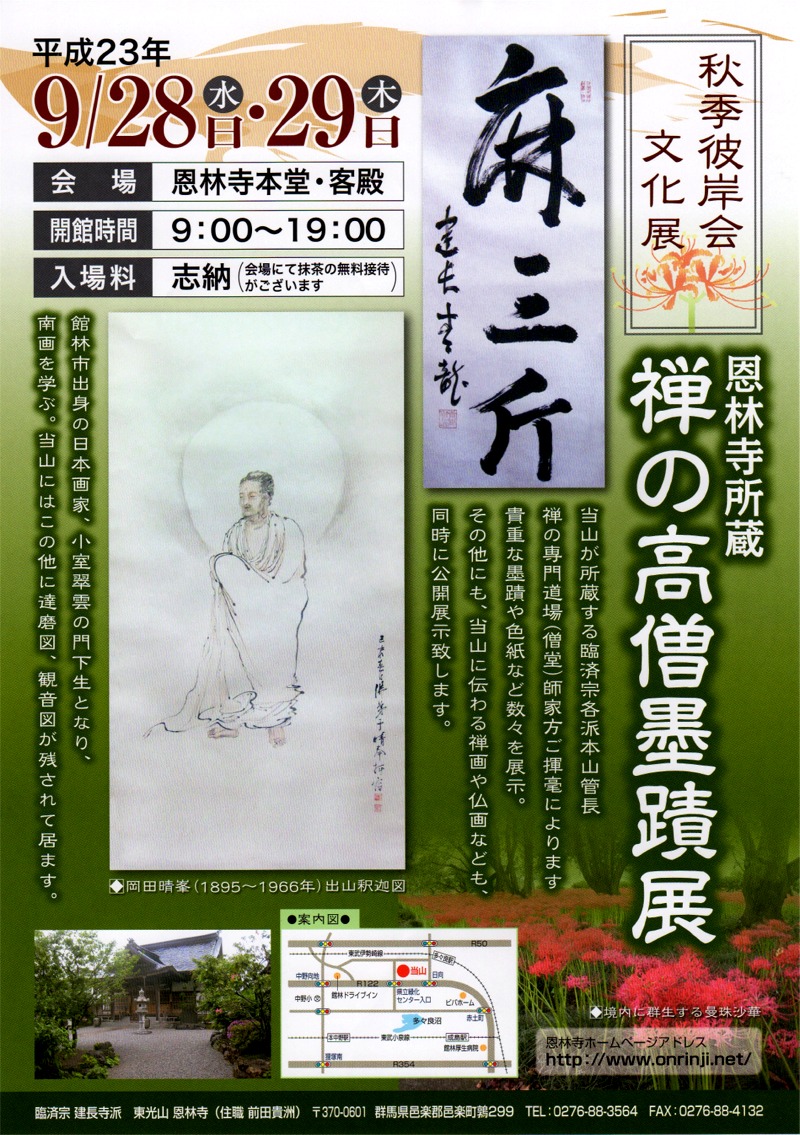 平成23年
9/28水日・29木日
会場 恩林寺本堂・客殿
開館時間 9:00〜19:00
入場料 志納(会場にて抹茶の無料接待
がございます)
秋季彼岸会
文化展
麻三斤
恩林寺所蔵
禅の高僧墨蹟展
当山が所蔵する臨済宗各派本山管長
禅の専門道場(僧堂)師家方ご揮毫によります
貴重な墨蹟や色紙など数々を展示。
その他にも、当山に伝わる禅画や仏画なども、
同時に公開展示致します。
館林市出身の日本画家、小室翠雲の門下生となり、
南画を学ぶ。当山にはこの他に達磨図、観音図が残されて居ます。
◆岡田晴峯(1895〜1966年)出山釈迦図
●案内図●
東武伊勢崎線
R50
多々良駅
中野向地
R122
当山
日向
館林ドライブイン
県立緑化
センター入口
中野小
ビバホーム
多々良沼
赤土町
本中野駅
東武小泉線
成島駅
館林厚生病院
篠塚南
R354
◆境内に群生する曼珠沙華
恩林寺ホームページアドレス
http://www.onrinji.net/
臨済宗 建長寺派 東光山 恩林寺(住職 前田貴洲) 〒370-0601 群馬県邑楽郡邑楽町鶉299 TEL:0276-88-3564 FAX:0276-88-4132